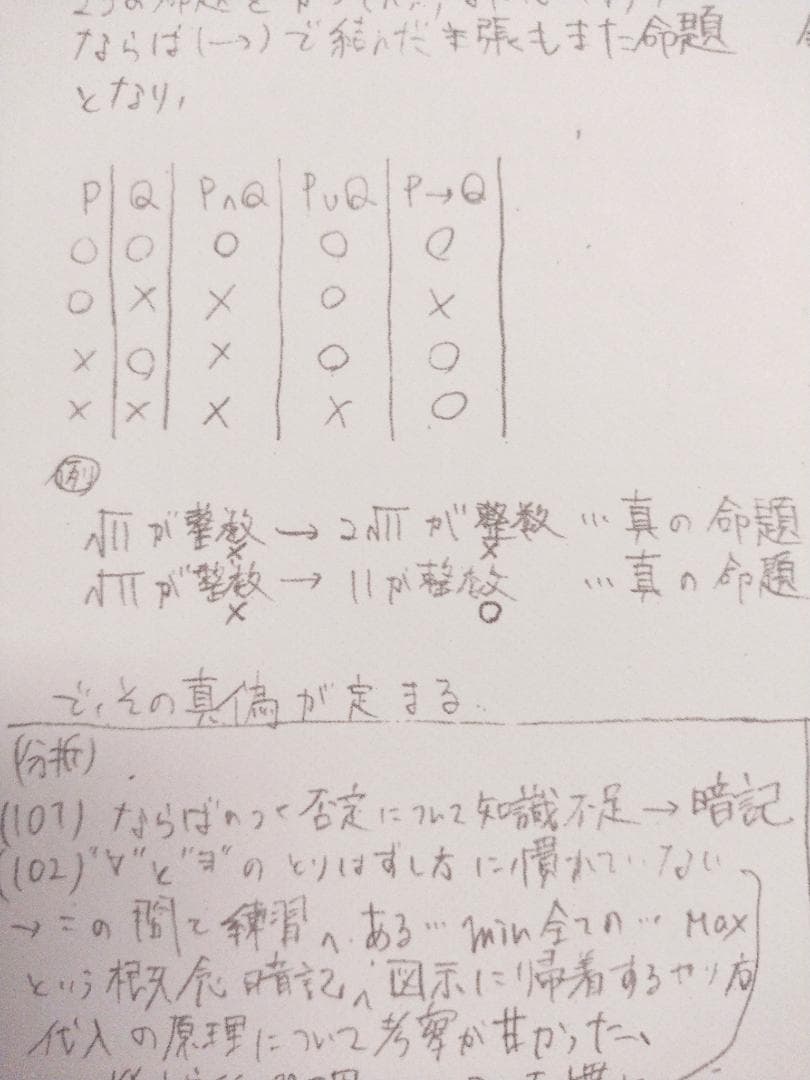 ならば(→)で結んだ主張もまた命題
となり、
P Q P∧Q P∪Q P→Q
○ ○ ○ ○ ○
○ × × ○ ×
× ○ × ○ ○
× × × × ○
例
√11が整数 → 2√11が整数 …真の命題
× ×
√11が整数 → 11が整数 …真の命題
× ○
で、その真偽が定まる.
(分析)
(101) ならばのつく否定について知識不足→暗記
(102)"∀"と"∃"のとりはずし方に慣れていない
→この間で練習、ある…min 全ての…Max
という概念暗記、図示に帰着するやり方
代入の原理について考察が甘かった、